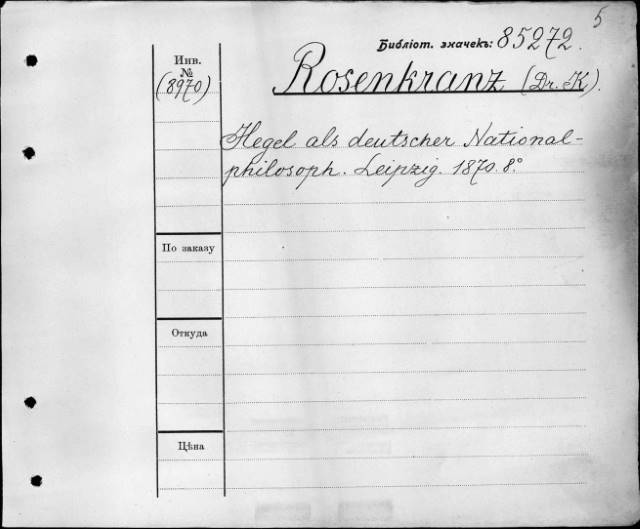 5
Библіот. значекъ: 85272.
Инв.
№
(8970)
Rosenkranz (Dr. K).
Hegel als deutscher National-
philosoph. Leipzig. 1870. 8°
По заказу
Откуда
Цѣна